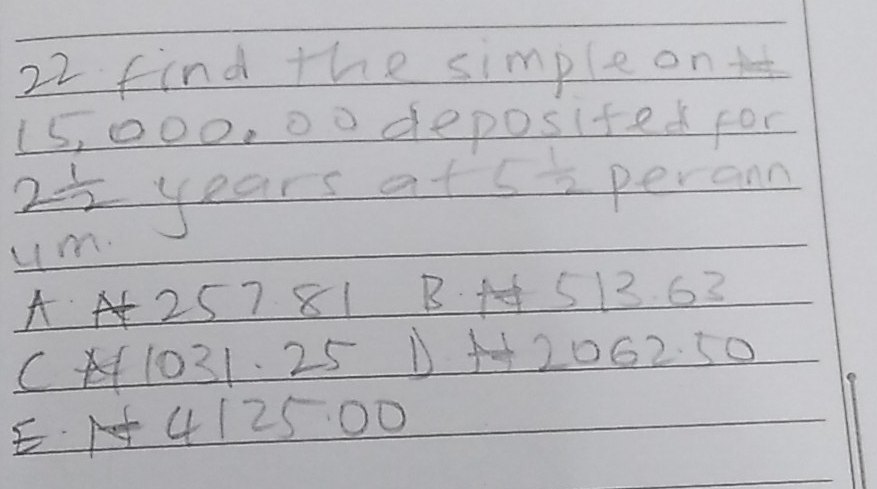 22. find the simple on ₦
15,000.00 deposited for
2½ years at 5½ perann
um.
A. ₦257.81 B. ₦513.63
C ₦1031.25 D. ₦2062.50
E. ₦4125.00